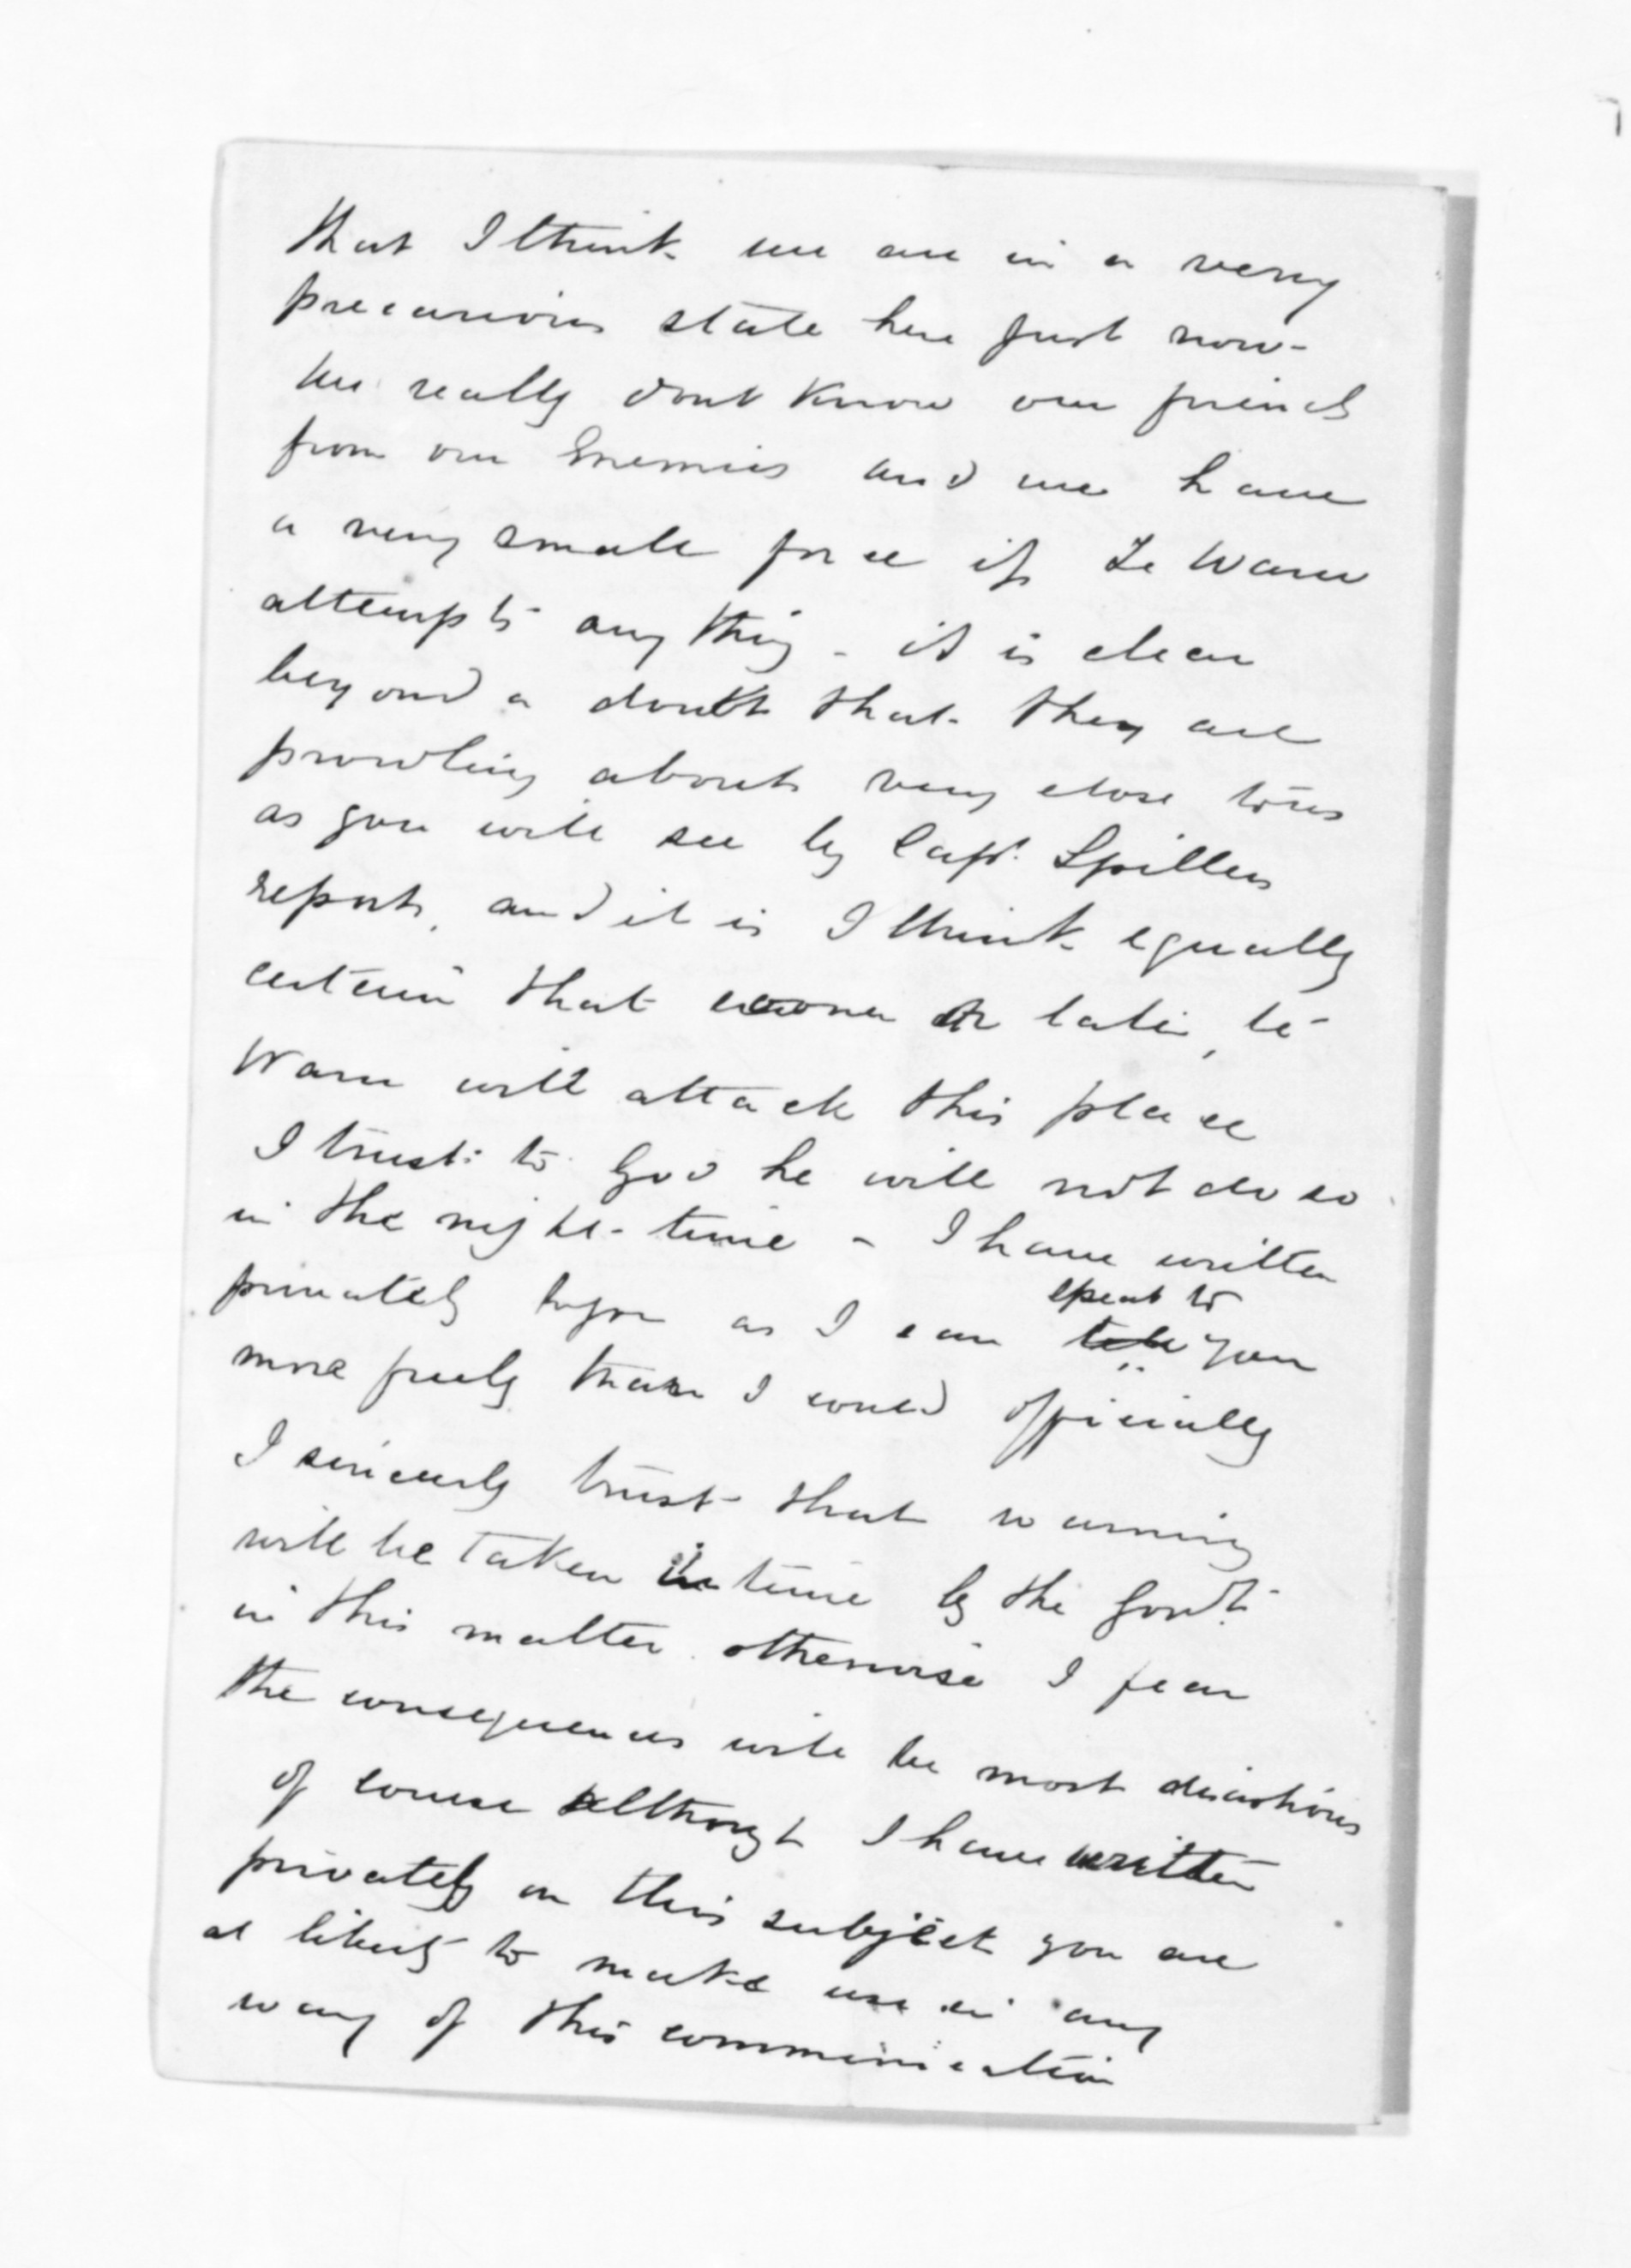 that I think we are in a very
precarious state here just now-
we really dont know our friends
from our Enemies and we have
a very small force if Te Waru
attempts any thing - it is clear
beyond a doubt that they are
prowling about very close to us
as you will see by Capt. Spillers
report, and it is I think equally
certain that sooner or later, te
Waru will attack this place
I trust to God he will not do so
in the night-time - I have written
speak to
privately to you as I can tell you
more freely than I could officially
I sincerely trust that warning
will be taken in time by the Govt.
in this matter otherwise I fear
the consequences will be most disastrous
of course although I have written
privately on this subject you are
at liberty to make use in any
way of this communication